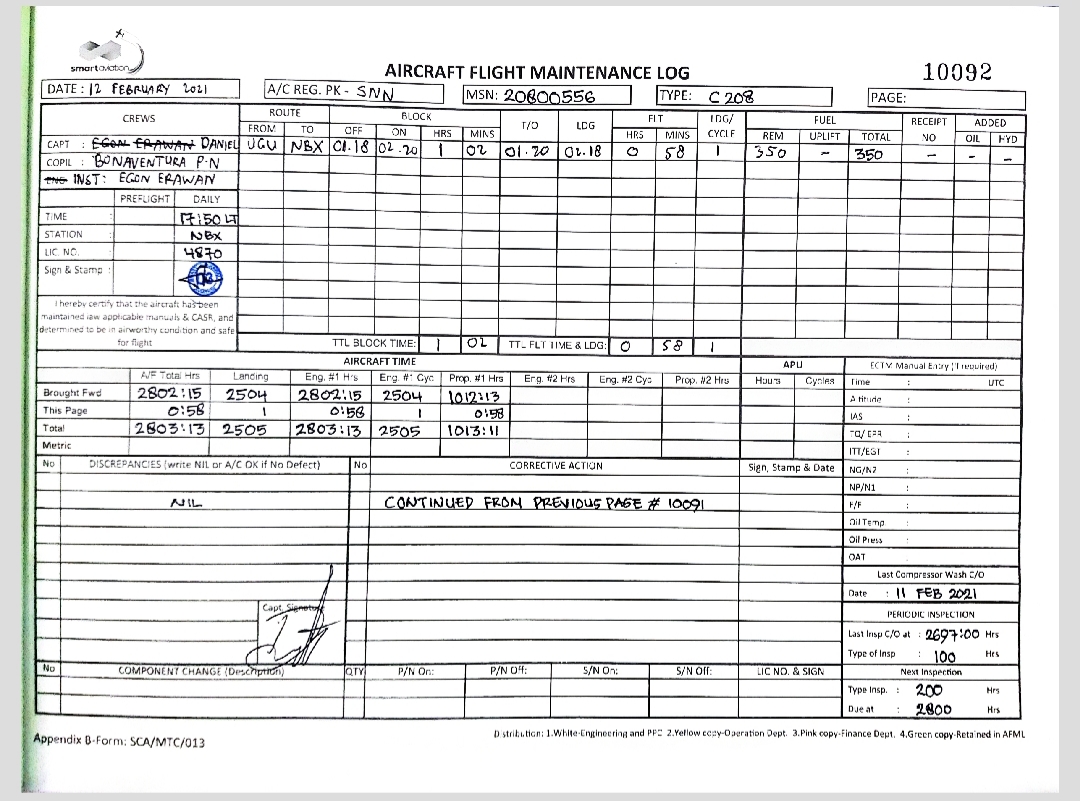 smartaviation
AIRCRAFT FLIGHT MAINTENANCE LOG
10092
DATE : 12 FEBRUARY 2021
A/C REG. PK - SNN
MSN: 20800556
TYPE: C 208
PAGE:
CREWS ROUTE BLOCK T/O LDG FLT LDG/ CYCLE FUEL RECEIPT NO ADDED
FROM TO OFF ON HRS MINS HRS MINS REM UPLIFT TOTAL OIL HYD
CAPT : EGON ERAWAN DANIEL UGU NBX 01.18 02.20 1 02 01.20 02.18 0 58 1 350 - 350 - - -
COPIL : BONAVENTURA P.N
ENG INST: EGON ERAWAN
PREFLIGHT DAILY
TIME : 17:50 LT
STATION : NBX
LIC. NO. : 4870
Sign & Stamp :
I hereby certify that the aircraft has been
maintained iaw applicable manuals & CASR, and
determined to be in airworthy condition and safe
for flight
TTL BLOCK TIME: 1 02 TTL FLT TIME & LDG: 0 58 1
AIRCRAFT TIME APU ECTM Manual Entry (if required)
A/F Total Hrs Landing Eng. #1 Hrs Eng. #1 Cyc Prop. #1 Hrs Eng. #2 Hrs Eng. #2 Cyc Prop. #2 Hrs Hours Cycles Time : UTC
Brought Fwd 2802:15 2504 2802:15 2504 1012:13 Altitude :
This Page 0:58 1 0:58 1 0:58 IAS :
Total 2803:13 2505 2803:13 2505 1013:11 TQ/ EPR :
Metric ITT/EGT :
No DISCREPANCIES (write NIL or A/C OK if No Defect) No CORRECTIVE ACTION Sign, Stamp & Date NG/N2 :
NP/N1 :
NIL CONTINUED FROM PREVIOUS PAGE # 10091 F/F :
Oil Temp. :
Oil Press :
OAT
Last Compressor Wash C/O
Date : 11 FEB 2021
Capt. Signature
PERIODIC INSPECTION
Last Insp C/O at : 2697:00 Hrs
Type of Insp : 100 Hrs
No COMPONENT CHANGE (Description) QTY P/N On: P/N Off: S/N On: S/N Off: LIC NO. & SIGN Next Inspection
Type Insp. : 200 Hrs
Due at : 2800 Hrs
Appendix B-Form: SCA/MTC/013
Distribution: 1.White-Engineering and PPC 2.Yellow copy-Operation Dept. 3.Pink copy-Finance Dept. 4.Green copy-Retained in AFML